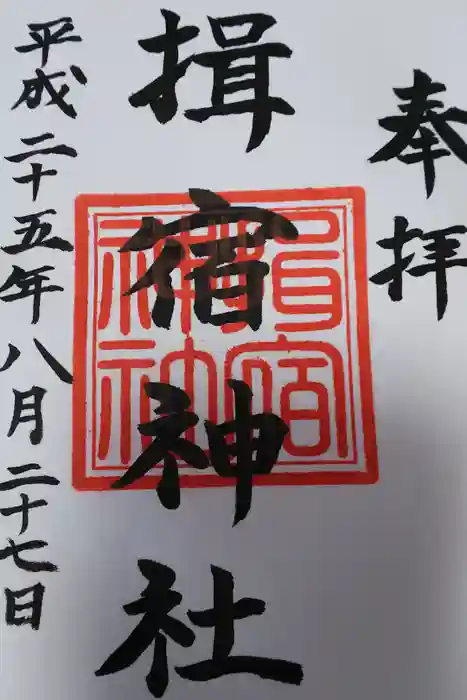 奉拝
揖宿神社
平成二十五年八月二十七日
揖宿神社